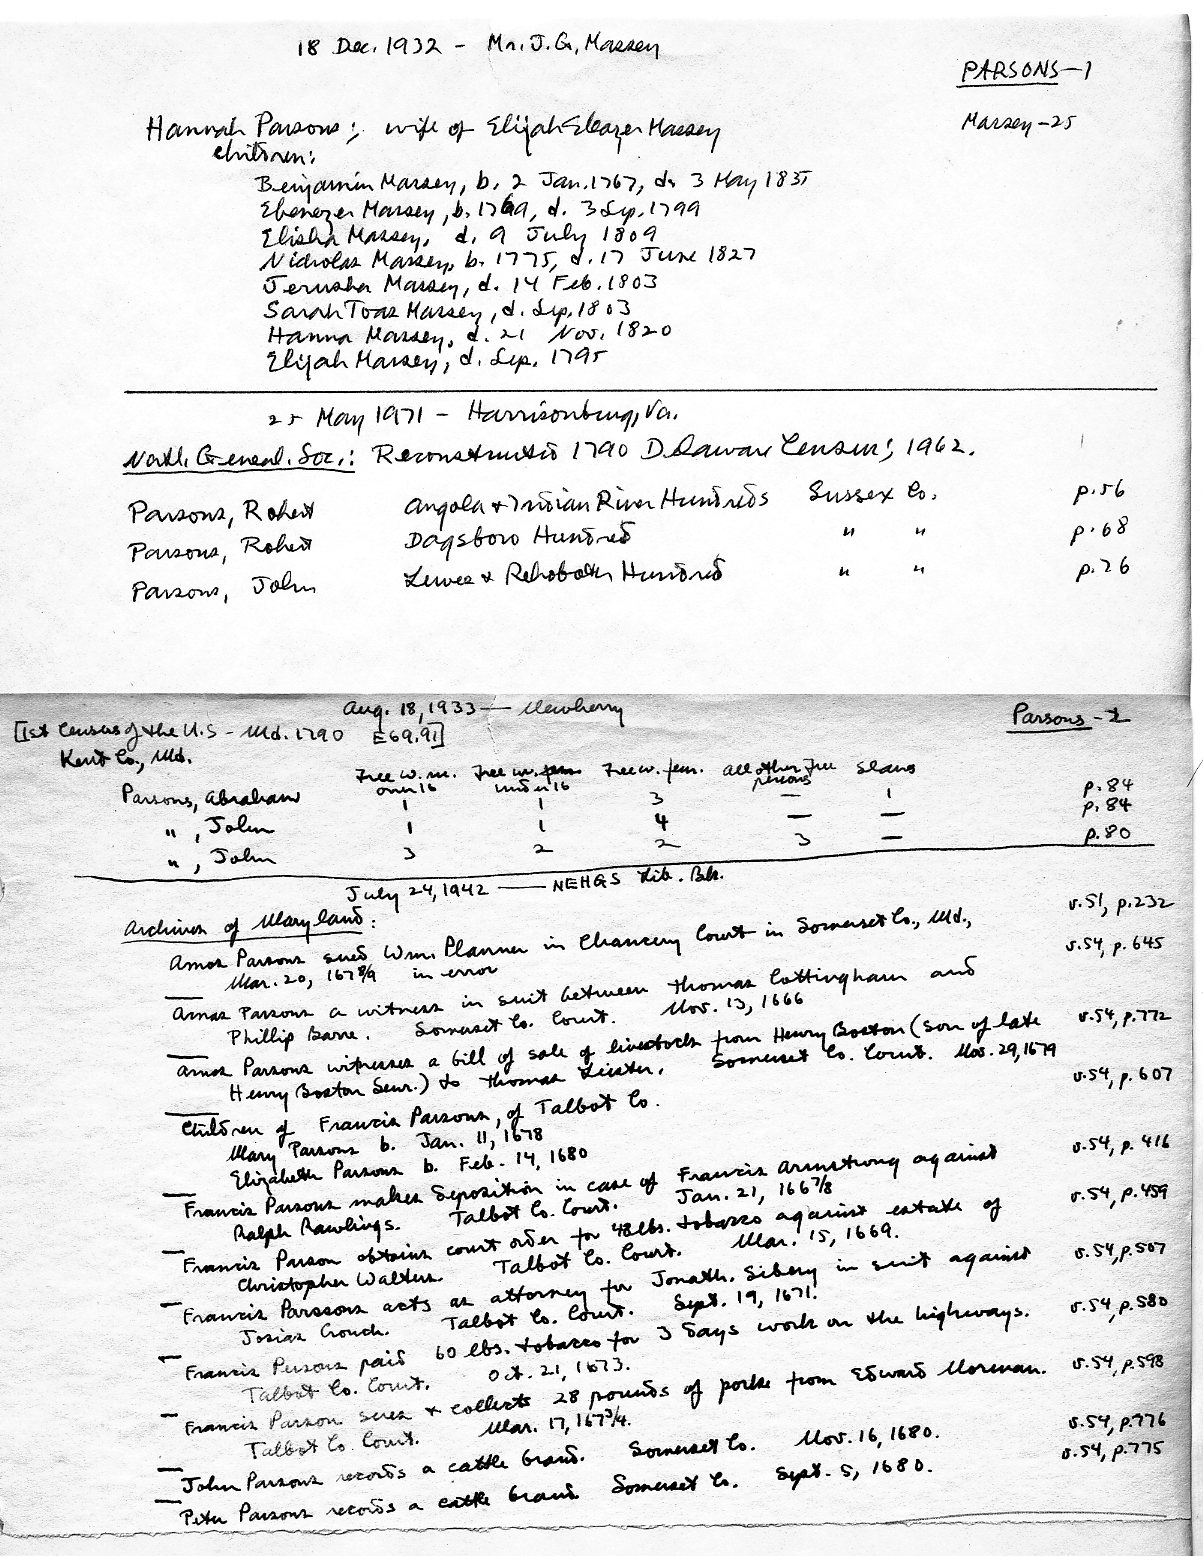 18 Dec. 1932 - Mr. J. G. Massey
PARSONS-1
Massey-25
Hannah Parsons; wife of Elijah Eleazer Massey
children:
Benjamin Massey, b. 2 Jan. 1767, d. 3 May 1835
Ebenezer Massey, b. 1769, d. 3 Sep. 1799
Elisha Massey, d. 9 July 1809
Nicholas Massey, b. 1775, d. 17 June 1827
Jerusha Massey, d. 14 Feb. 1803
Sarah Toas Massey, d. Sep. 1803
Hanna Massey, d. 21 Nov. 1820
Elijah Massey, d. Sep. 1795
25 May 1971 - Harrisonburg, Va.
Natl. Geneal. Soc.: Reconstructed 1790 Delaware Census, 1962.
Parsons, Robert Angola & Indian River Hundreds Sussex Co. p. 56
Parsons, Robert Dagsboro Hundred " " p. 68
Parsons, John Lewes & Rehoboth Hundred " " p. 76
Aug. 18, 1933 — Newberry
Parsons-2
[1st Census of the U.S - Md. 1790 E69.91]
Kent Co., Md.
Free w. m. over 16 Free w. under 16 Free w. fem. All other free persons Slaves
Parsons, Abraham 1 1 3 — 1 p. 84
" , John 1 1 4 — — p. 84
" , John 3 2 2 3 — p. 80
July 24, 1942 — NEHGS Lib. Bk.
Archives of Maryland:
Amos Parsons sued Wm. Planner in Chancery Court in Somerset Co., Md., v. 51, p. 232
Mar. 20, 1678/9 in error
Amos Parsons a witness in suit between Thomas Cottingham and v. 54, p. 645
Phillip Barre. Somerset Co. Court. Nov. 13, 1666
Amos Parsons witnesses a bill of sale of livestock from Henry Boston (son of late v. 54, p. 772
Henry Boston Senr.) to Thomas Lister. Somerset Co. Court. Nov. 29, 1679
Children of Francis Parsons, of Talbot Co. v. 54, p. 607
Mary Parsons b. Jan. 11, 1678
Elizabeth Parsons b. Feb. 14, 1680
Francis Parsons makes deposition in case of Francis Armstrong against v. 54, p. 416
Ralph Rawlings. Talbot Co. Court. Jan. 21, 1667/8
Francis Parson obtains court order for 48 lbs. tobacco against estate of v. 54, p. 459
Christopher Walters. Talbot Co. Court. Mar. 15, 1669.
Francis Parssons acts as attorney for Jonath. Sibery in suit against v. 54, p. 507
Josias Crouch. Talbot Co. Court. Sept. 19, 1671.
Francis Persons paid 60 lbs. tobacco for 3 days work on the highways. v. 54, p. 580
Talbot Co. Court. Oct. 21, 1673.
Francis Parson sues & collects 28 pounds of porke from Edward Norman. v. 54, p. 598
Talbot Co. Court. Mar. 17, 1673/4.
John Parsons records a cattle brand. Somerset Co. Nov. 16, 1680. v. 54, p. 776
Peter Parsons records a cattle brand Somerset Co. Sept. 5, 1680. v. 54, p. 775